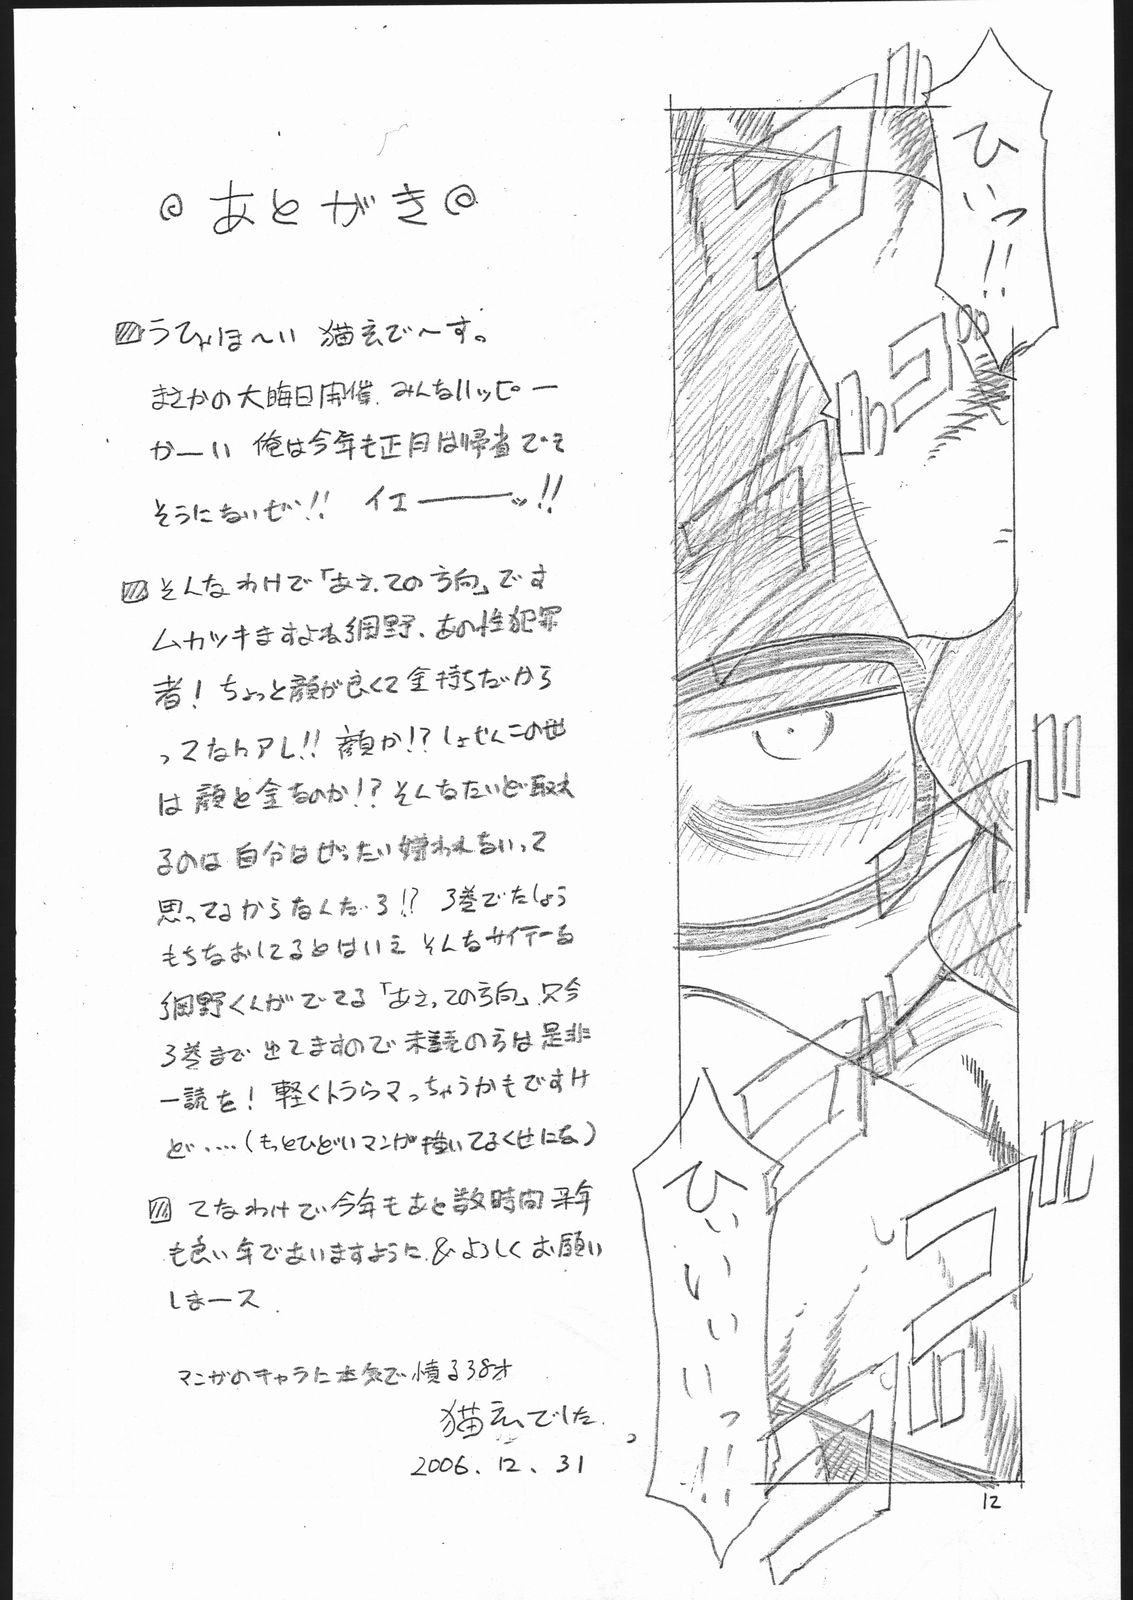 ひいっ!!
ひいいいいっ!!
あとがき
うひゃほ〜い 猫玄で〜す。
まさかの大晦日開催、みんなハッピー
かーい 俺は今年も正月は帰省でき
そうにないぜ!! イエーーーッ!!
そんなわけで「あえての方向」です
ムカツキますよね網野、あの性犯罪
者! ちょっと顔が良くて金持ちだから
ってなんアレ!! 顔か!? しょせんこの世
は顔と金なのか!? そんなたいど取れ
るのは自分はぜったい嫌われないって
思ってるからなんだろ!? 3巻でたしょう
もちなおしてるとはいえ そんなサイテーな
網野くんがでてる「あえての方向」只今
3巻まで出てますので未読の方は是非
一読を! 軽くトラウマっちゃうかもですけ
ど‥‥(もっとひどいマンガ描いてるくせにな)
てなわけで今年もあと数時間 来年
も良い年でありますように & よろしくお願い
しまース
マンガのキャラに本気で憤る38才
猫玄でした。
2006.12.31
12